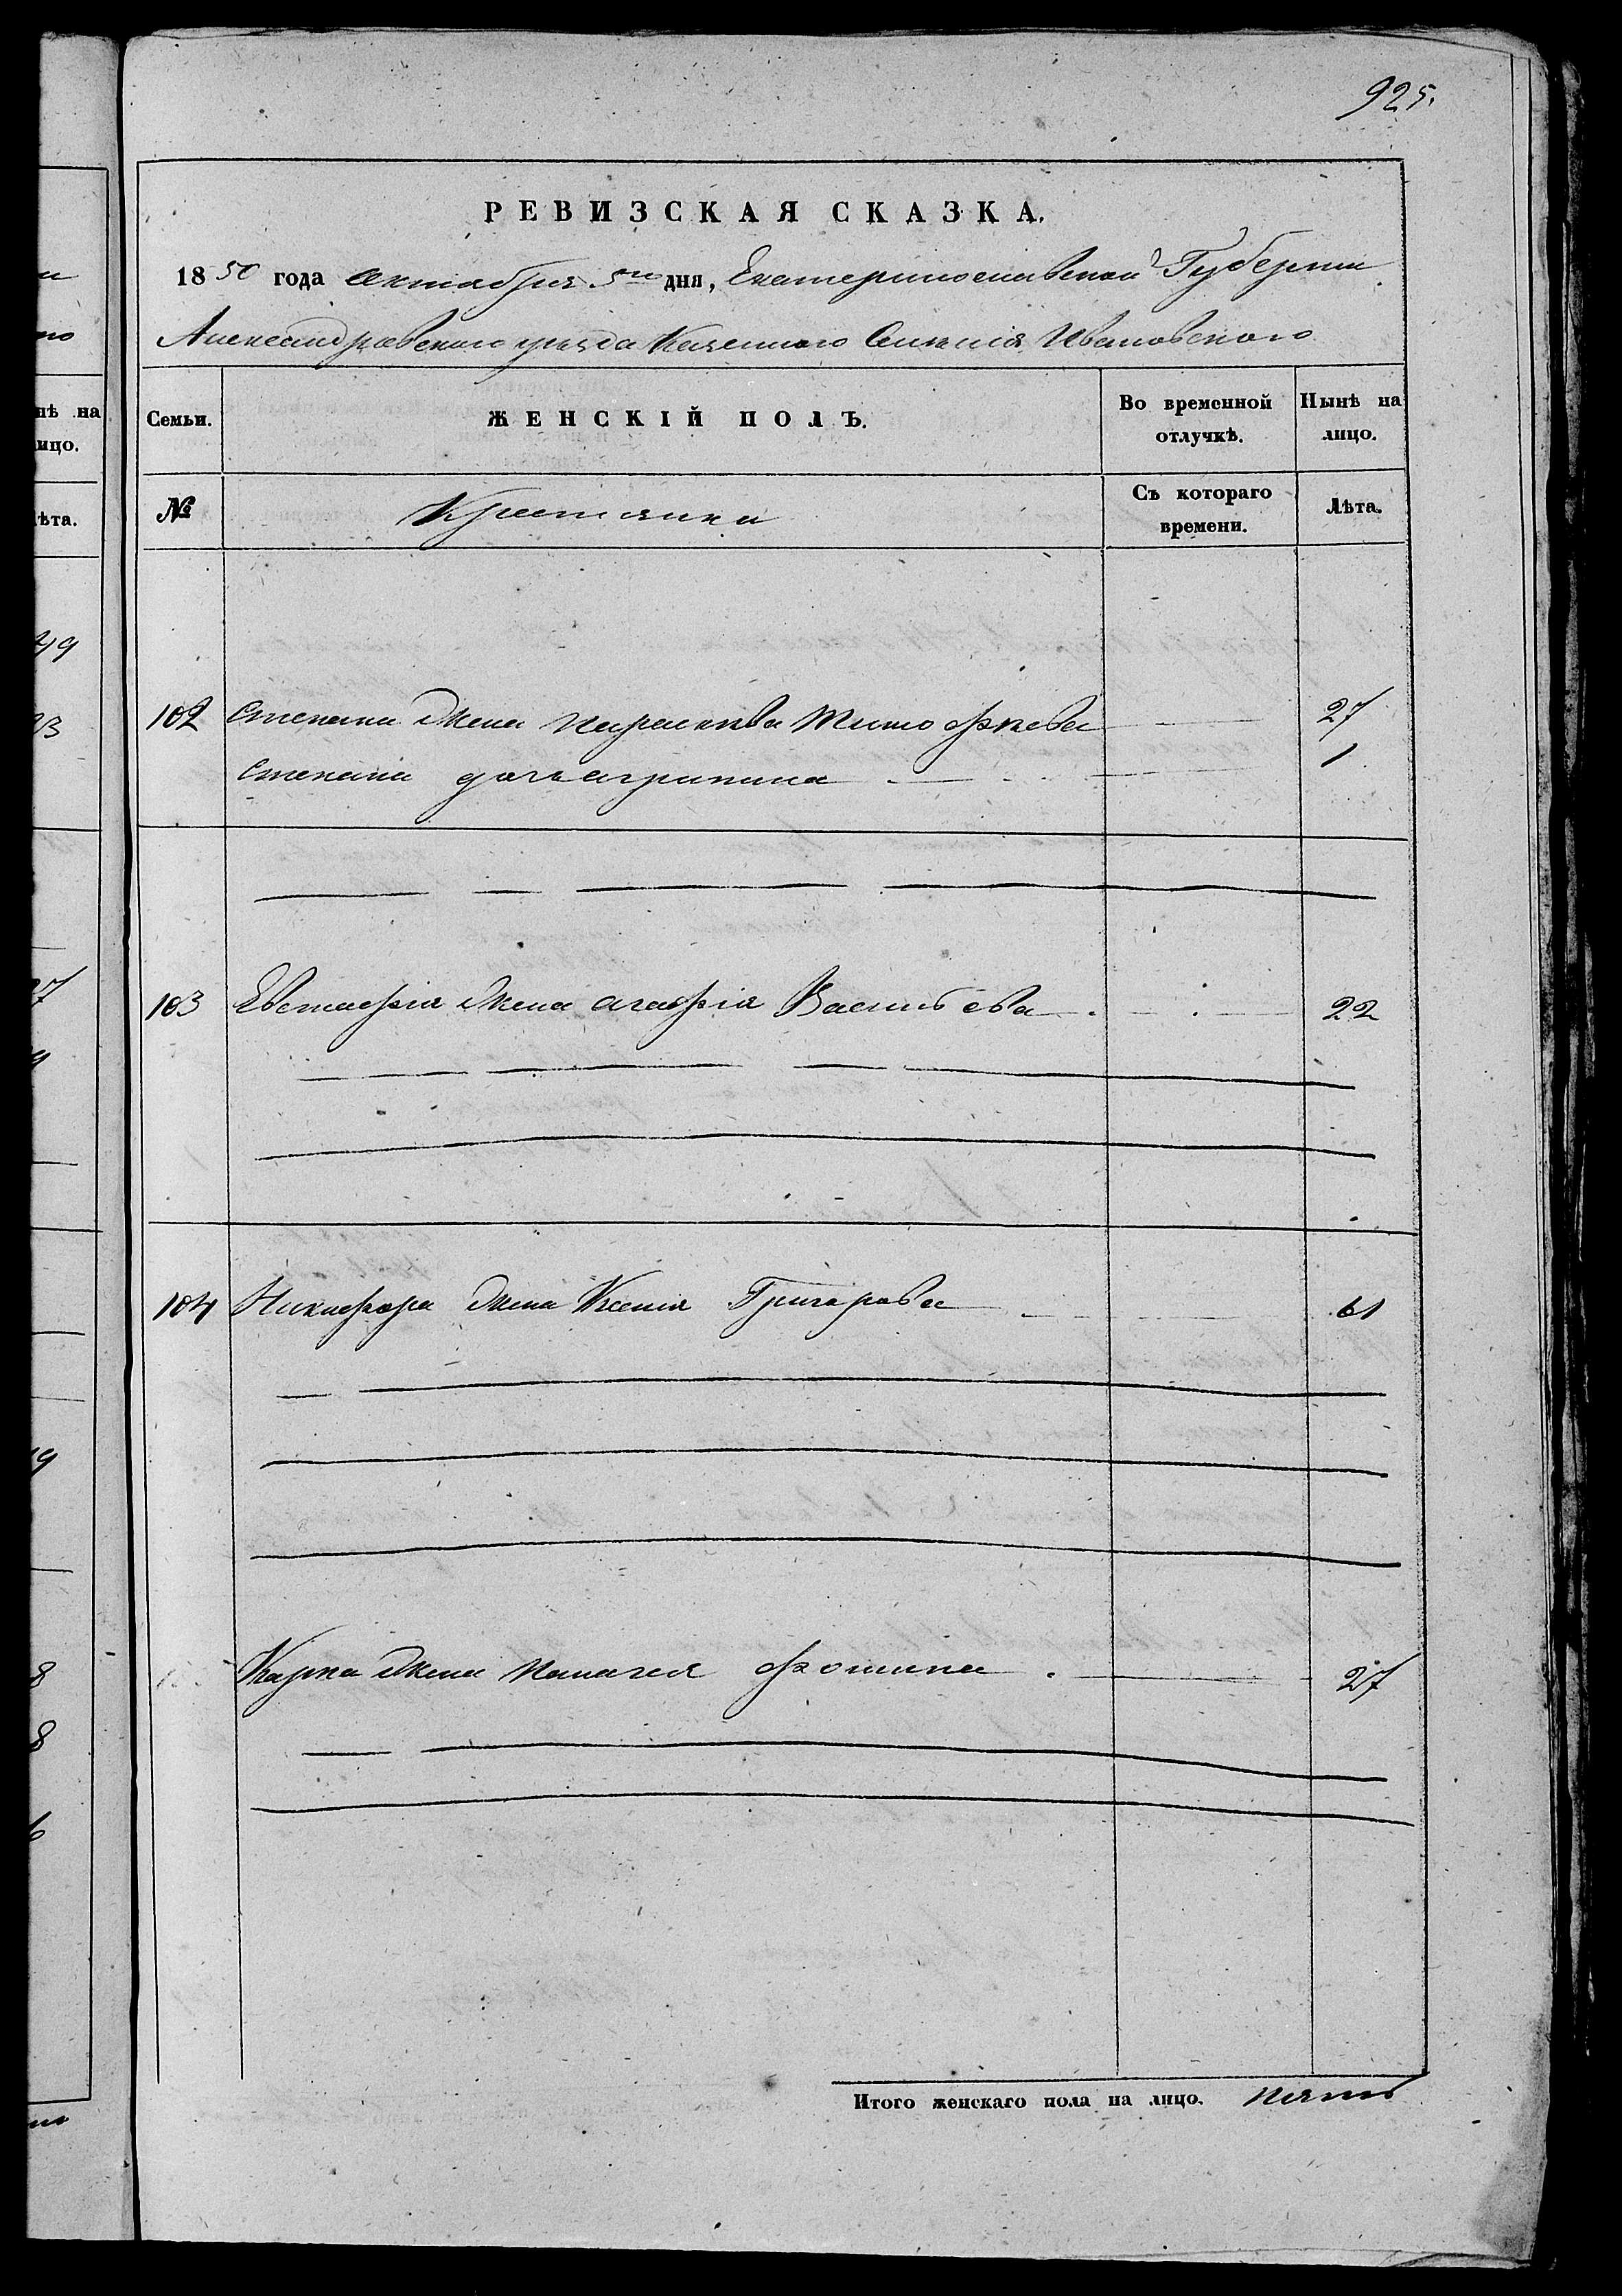 925.
РЕВИЗСКАЯ СКАЗКА.
1850 года октября 5го дня, Екатеринославской Губернии
Александровского уезда Казенного Селения Ивановского
Семьи. ЖЕНСКІЙ ПОЛЪ. Во временной отлучкѣ. Нынѣ на лицо.
№ Крестьянки Съ котораго времени. Лѣта.
102 Степана жена Параскева Тимофѣева 27
Степана дочь агрипина 1
103 Евстафія жена агафія Васильева 22
104 Никифора жена Ксенія Григорова 61
Карпа жена Палагея фомина 27
Итого женскаго пола на лицо. пять
нѣ на
ицо.
ѣта.
49
23
27
9
19
8
8
6